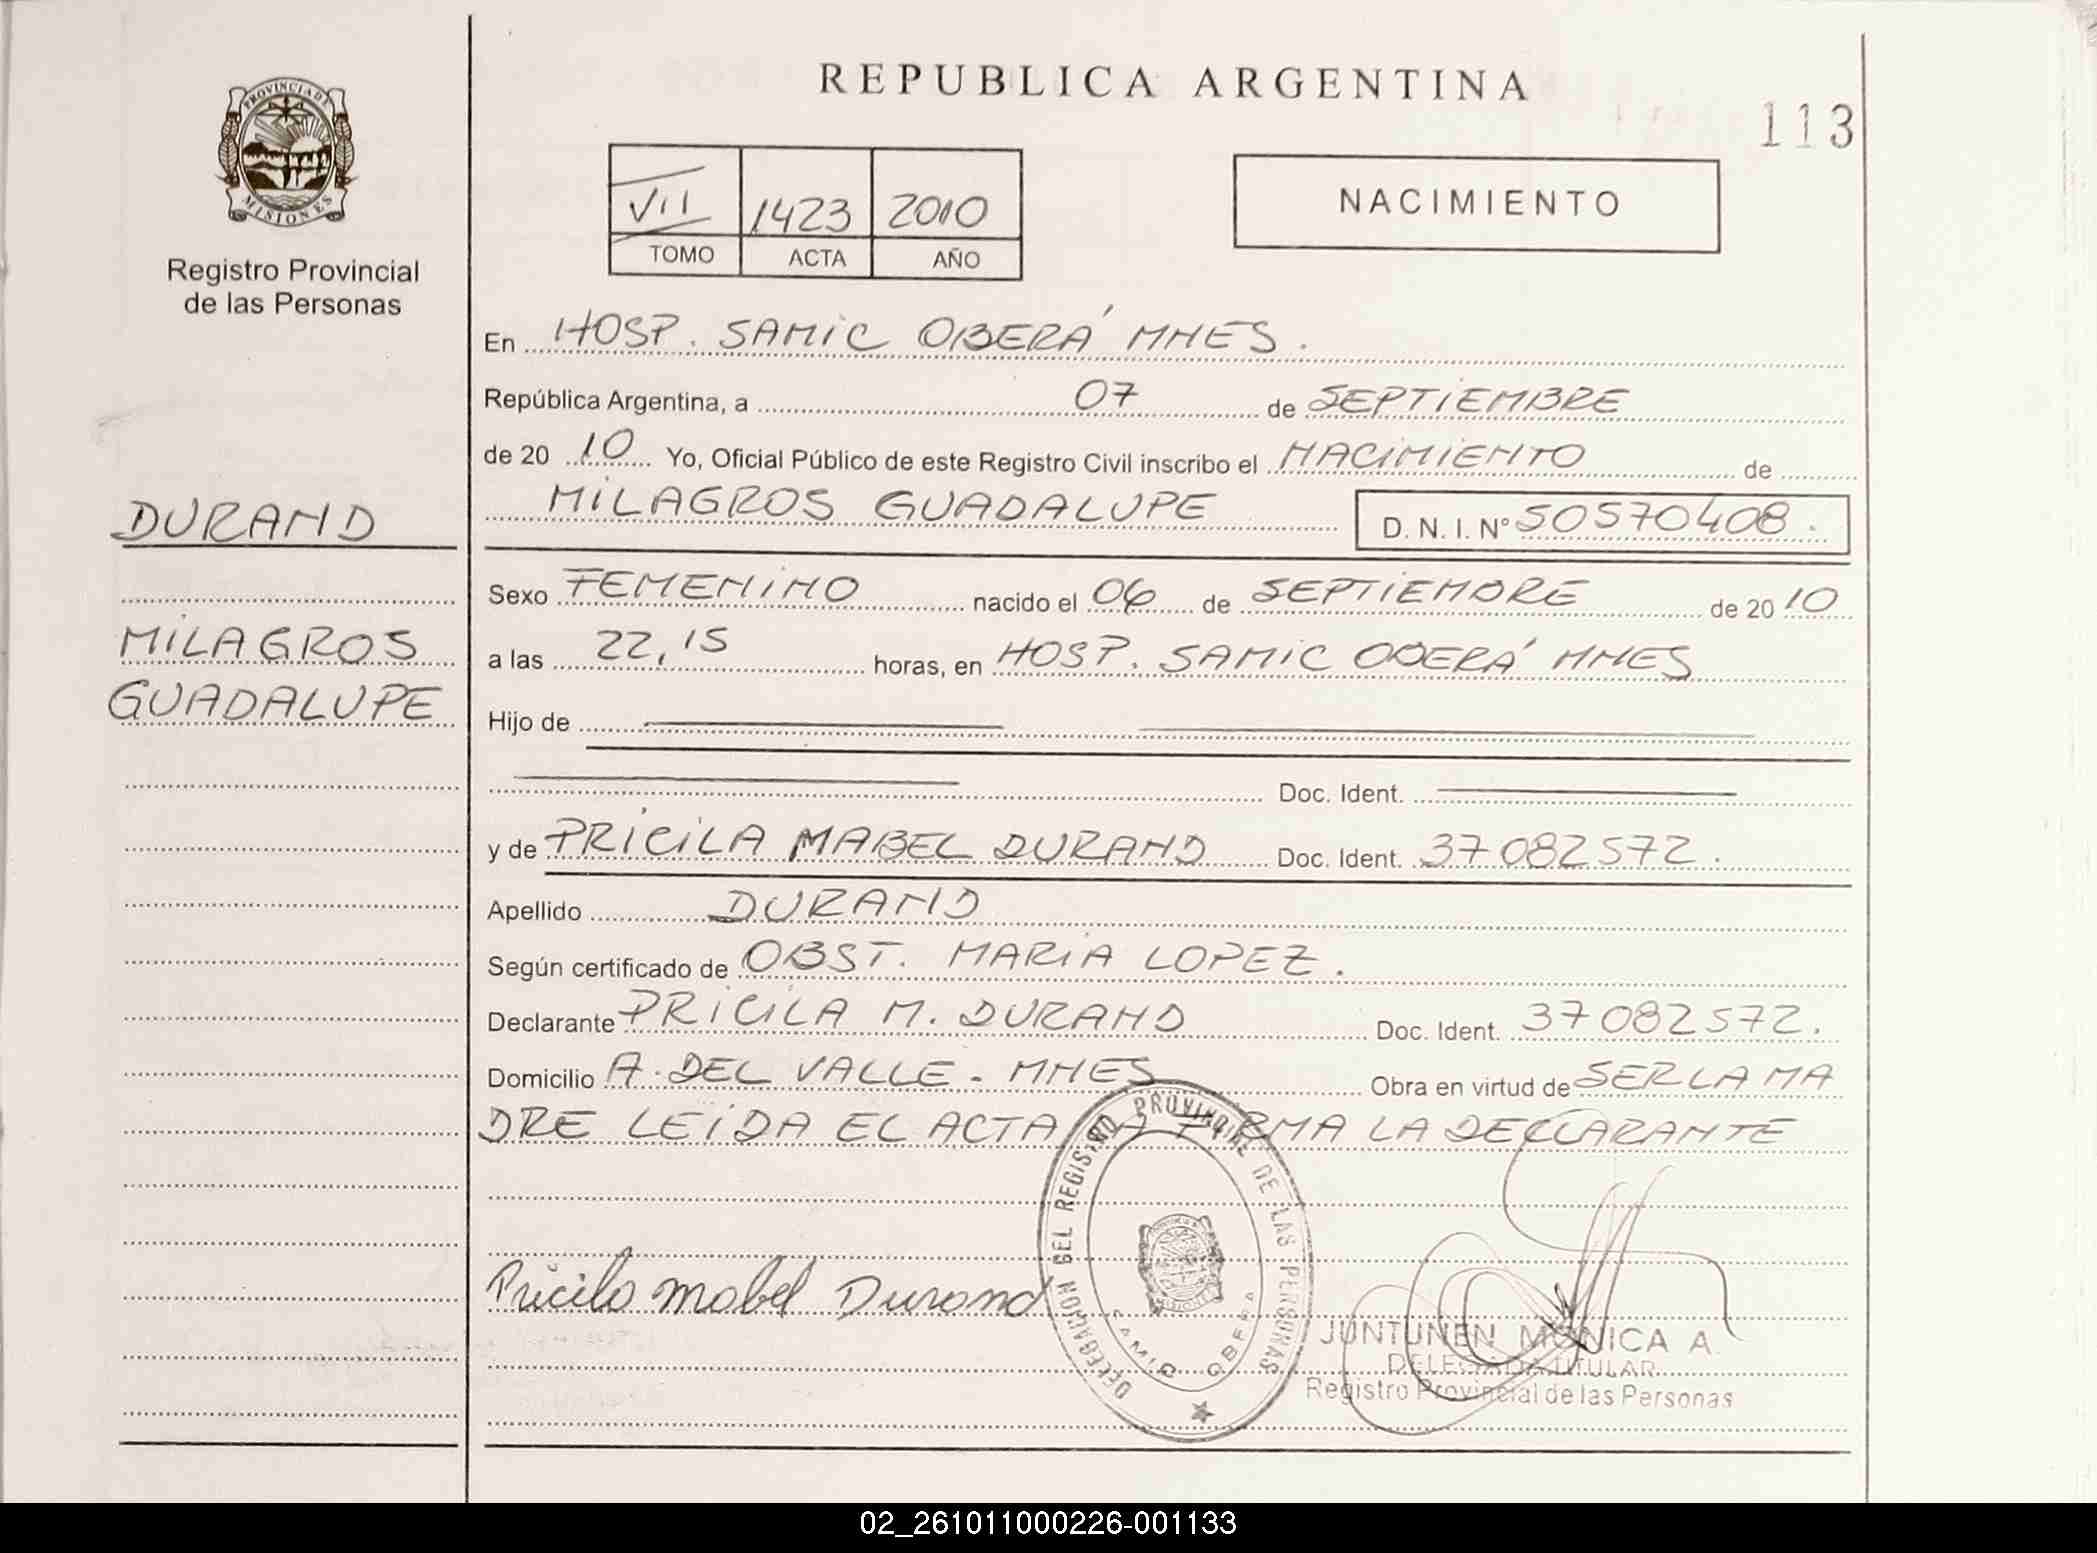 REPUBLICA ARGENTINA
113
PROVINCIA DE
MISIONES
Registro Provincial
de las Personas
VII 1423 2010
TOMO ACTA AÑO
NACIMIENTO
En HOSP. SAMIC OBERÁ MNES.
República Argentina, a 07 de SEPTIEMBRE
de 20 10 Yo, Oficial Público de este Registro Civil inscribo el NACIMIENTO de
MILAGROS GUADALUPE D. N. I. Nº 50570408.
DURAND
MILAGROS
GUADALUPE
Sexo FEMENINO nacido el 06 de SEPTIEMBRE de 20 10
a las 22,15 horas, en HOSP. SAMIC OBERÁ MNES
Hijo de
Doc. Ident.
y de PRICILA MABEL DURAND Doc. Ident. 37082572.
Apellido DURAND
Según certificado de OBST. MARIA LOPEZ.
Declarante PRICILA M. DURAND Doc. Ident. 37082572.
Domicilio A. DEL VALLE - MNES Obra en virtud de SER LA MA
DRE LEIDA EL ACTA LA FIRMA LA DECLARANTE
Pricila Mabel Durand
DELEGACION DEL REGISTRO PROVINCIAL DE LAS PERSONAS
SAMIC OBERA
JUNTUNEN MONICA A.
DELEGADA TITULAR
Registro Provincial de las Personas
02_261011000226-001133